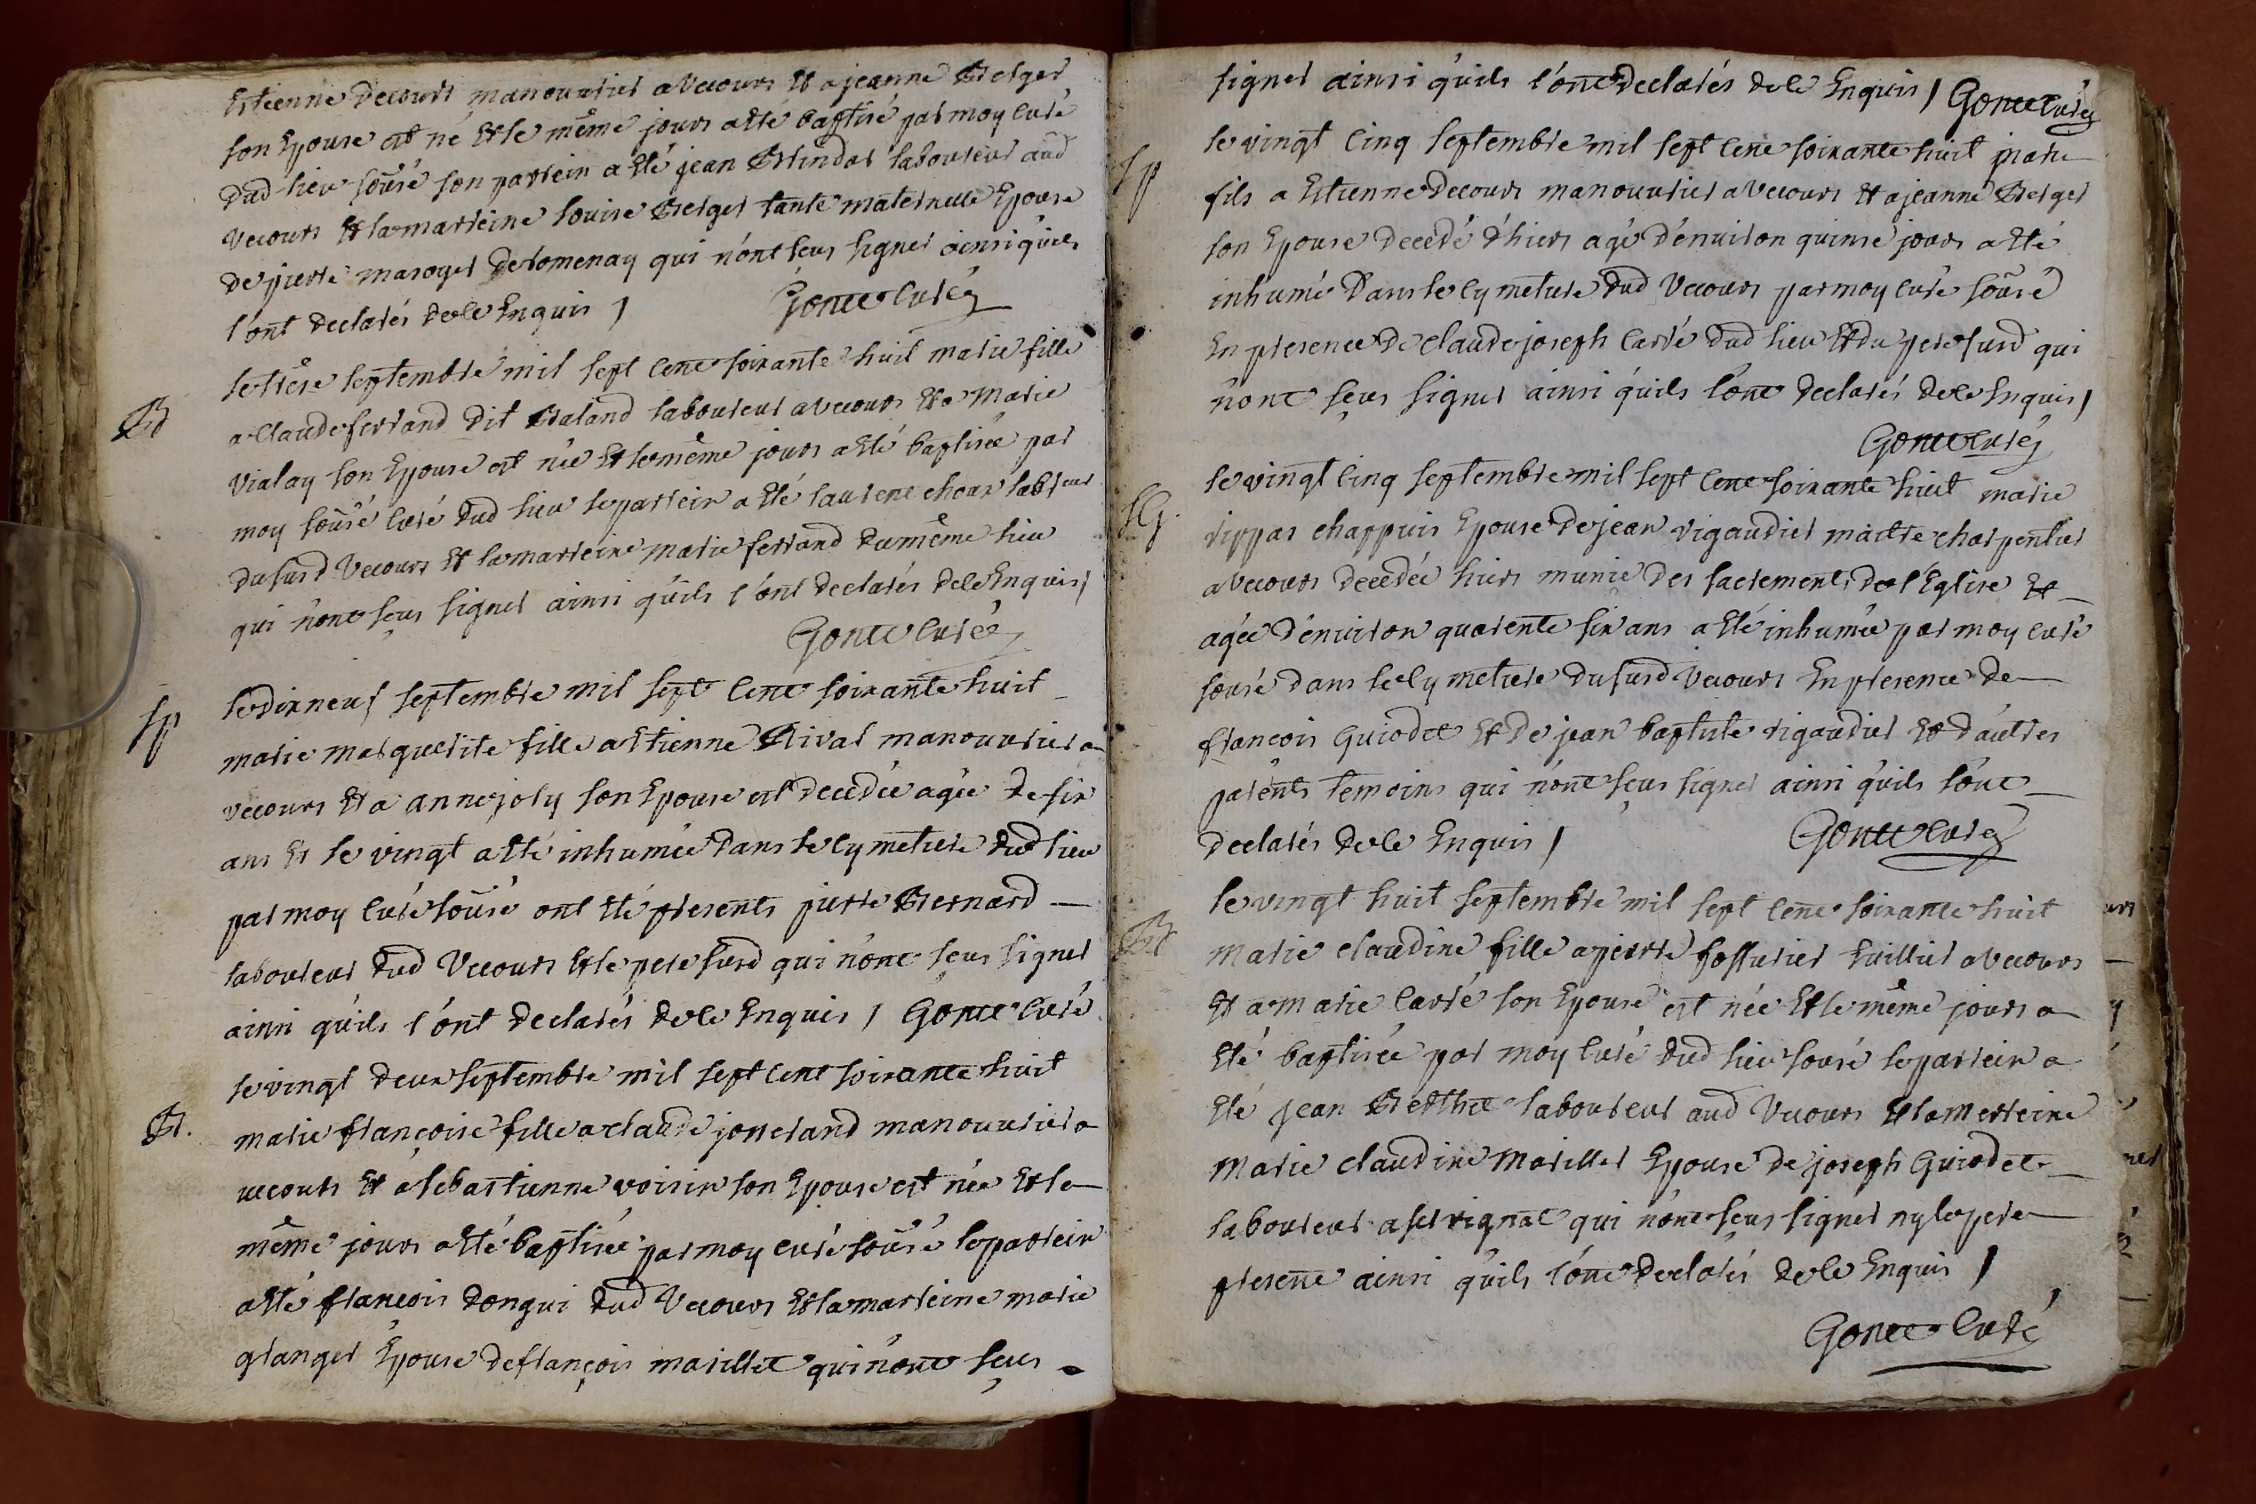 Estienne decours manouvrier a Vecours Et a jeanne Berger
son Epouse est né Et le même jours a Eté baptisé par moy curé
dud lieu sousé son parrein a Eté jean Brindas laboureur aud
Vecours Et la marreine louise Berger tante maternelle Epouse
de pierre maroyer de romenay qui n'ont sçus signer ainsi qu'ils
l'ont declarés de ce Enquis / Gonet curé
le treise septembre mil sept cent soixante huit marie fille
B a Claude ferrand dit Baland laboureur a vecours Et a Marie
vialay son Epouse est née Et le même jours a Eté baptisée par
moy sousé curé dud lieu le parrein a Eté laurent choux labreur
dususd Vecours Et la marreine marie ferrand du même lieu
qui n'ont sçus signer ainsi qu'ils l'ont declarés de ce Enquis /
Gonet curé
Sp le dix neuf septembre mil sept cent soixante huit
marie marguerite fille a Etienne Rival manouvrier a
vecours Et a anne joly son Epouse est decedée agée de six
ans Et le vingt a Eté inhumée dans le cymetiere dud lieu
par moy curé sousé ont Eté presents pierre Bernard
laboureur dud Vecours Et le pere susd qui n'ont sçus signer
ainsi qu'ils l'ont declarés de ce Enquis / Gonet curé
le vingt deux septembre mil sept cent soixante huit
B. marie françoise fille a claude josserand manouvrier a
vecours Et a sebastienne voisin son Epouse est née Et le
même jours a Eté baptisée par moy curé sousé le parrein
a Eté françois dongui dud Vecours Et la marreine marie
granger Epouse de françois marillet qui n'ont sçus
signer ainsi qu'ils l'ont declarés de ce Enquis / Gonet curé
Sp le vingt cinq septembre mil sept cent soixante huit
fils a Estienne decours manouvrier a Vecours Et a jeanne Berger
son Epouse decedé d'hiers agé d'environ quinse jours a Eté
inhumé dans le cymetiere dud Vecours par moy curé sousé
En presence de claude joseph carré dud lieu Et du pere susd qui
n'ont sçus signer ainsi qu'ils l'ont declarés de ce Enquis /
Gonet curé
SG. le vingt cinq septembre mil sept cent soixante huit marie
rippas chappuis Epouse de jean rigaudier maitre charpentier
a Vecours decedée hiers munie des sacrements de l'Eglise Et
agée d'environ quarente six ans a Eté inhumée par moy curé
sousé dans le cymetiere du susd Vecours En presence de
françois Guiodet Et de jean baptiste rigaudier Et d'autres
parents temoins qui n'ont sçus signer ainsi qu'ils l'ont
declarés de ce Enquis / Gonet curé
le vingt huit septembre mil sept cent soixante huit
B Marie claudine fille a pierre fossurier tuillier a Vecours
Et a Marie carré son Epouse est née Et le même jours a
Eté baptisée par moy curé dud lieu sousé le parrein a
Eté jean Berthet laboureur aud Vecours Et la Merreine
Marie claudine Marillet Epouse de joseph Guiodet
laboureur a servignat qui n'ont sçus signer ny le pere
present ainsi qu'ils l'ont declarés de ce Enquis /
Gonet curé